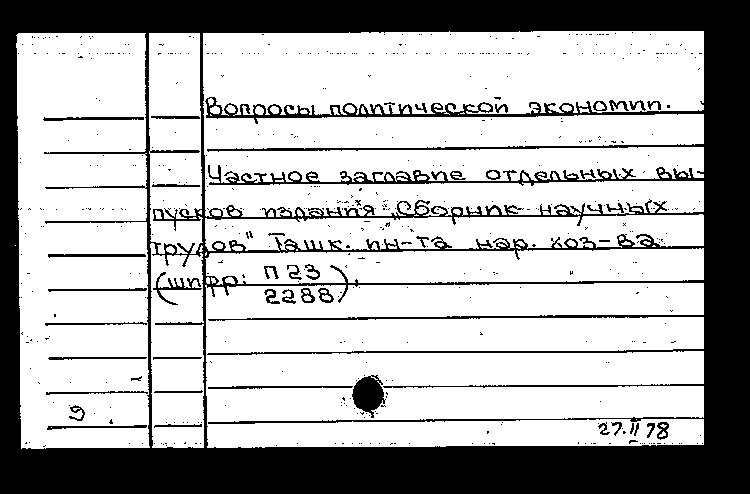 Вопросы политической экономии.
Частное заглавие отдельных вы-
пусков издания „Сборник научных
трудов" Ташк. ин-та нар. хоз-ва
(шифр: П 23
2288).
9
27.II 78